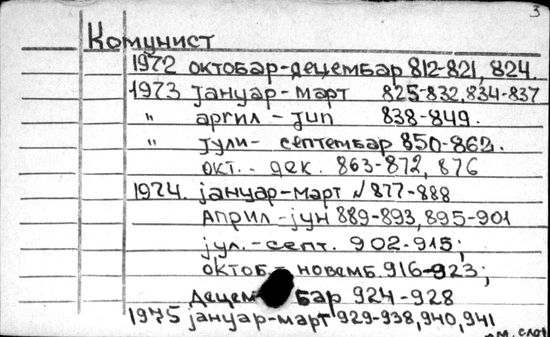 3
Комунист
1972 октобар-децембар 812-821, 824.
1973 јануар-март 825-832, 834-837
" април - јуп 838-849.
" јули- септембар 850-862.
окт. - дек. 863-872, 876
1974. јануар-март N 877-888
Април-јун 889-893, 895-901
јул.-септ. 902-915;
октоб.- новемб. 916-923;
децем бар 924-928
1975 јануар-март 929-938, 940, 941